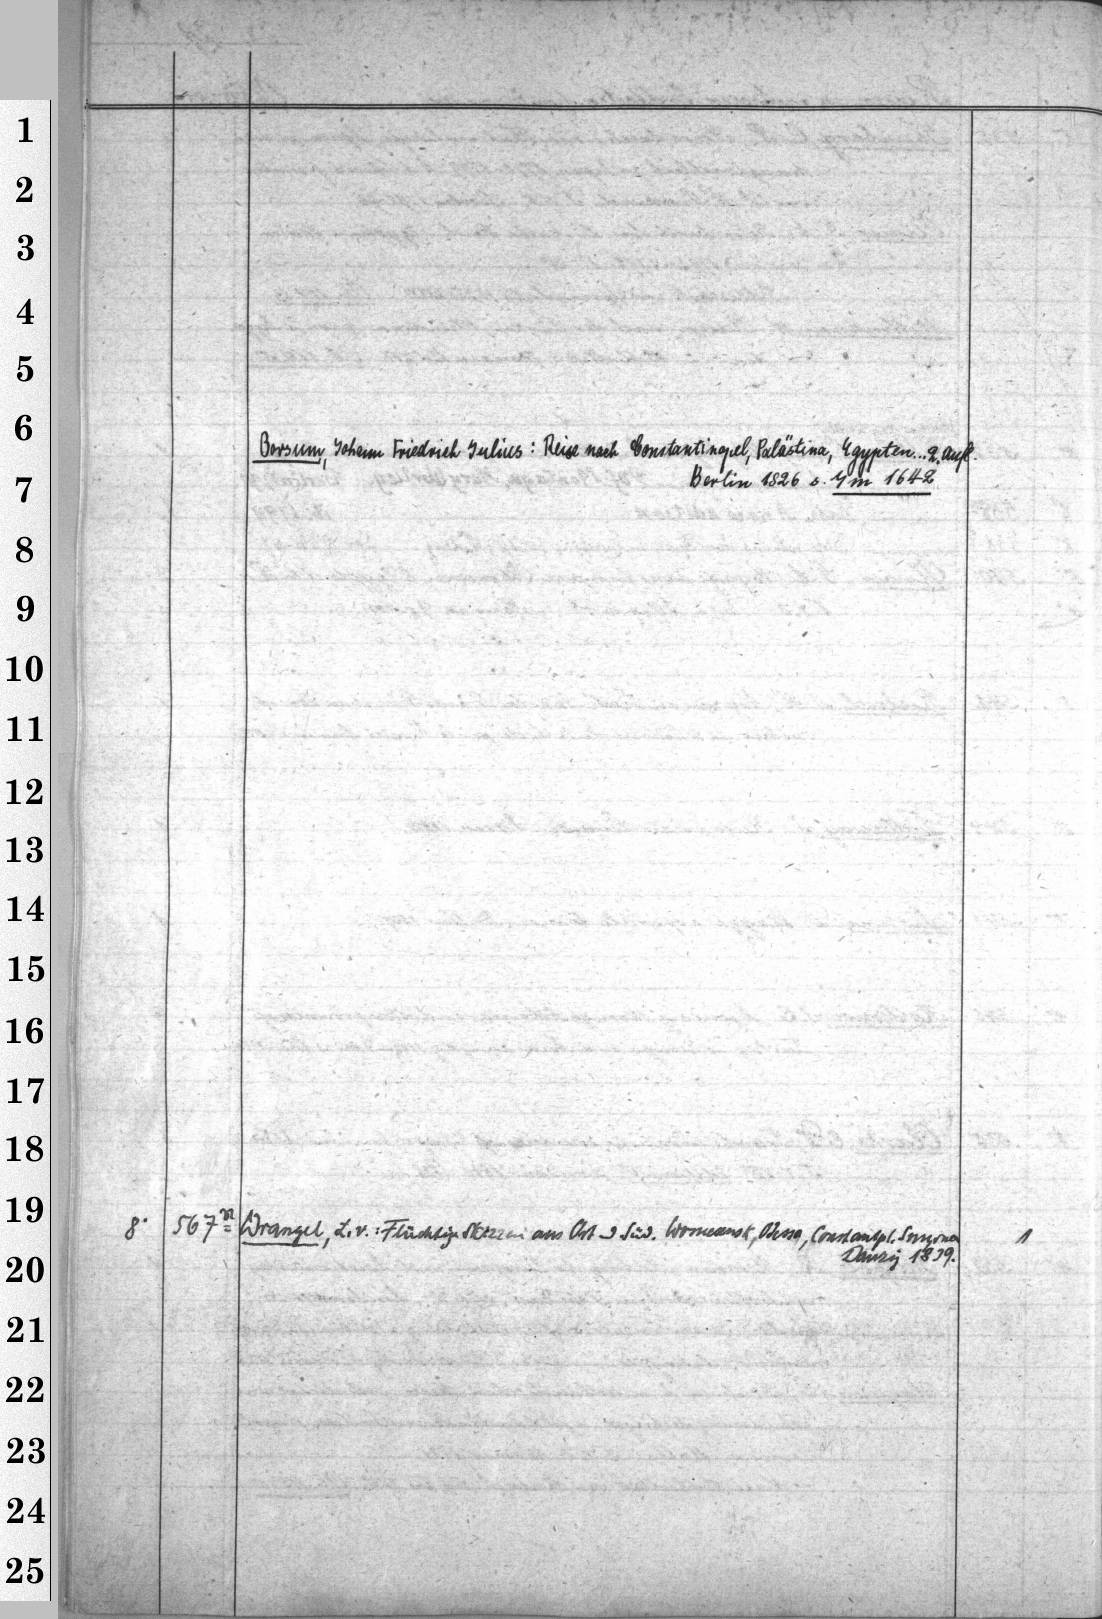 1
2
3
4
5
6
Borsum, Johann Friedrich Julius: Reise nach Constantinopel, Palästina, Egypten... 2. Aufl.
7
Berlin 1826 s. Ym 1642
8
9
10
11
12
13
14
15
16
17
18
19
8° 567 Wrangel, L. v.: Flüchtige Skizzen aus Ost u Süd. Odessa, Constantpl. Smyrna 1
20
Danzig 1839.
21
22
23
24
25